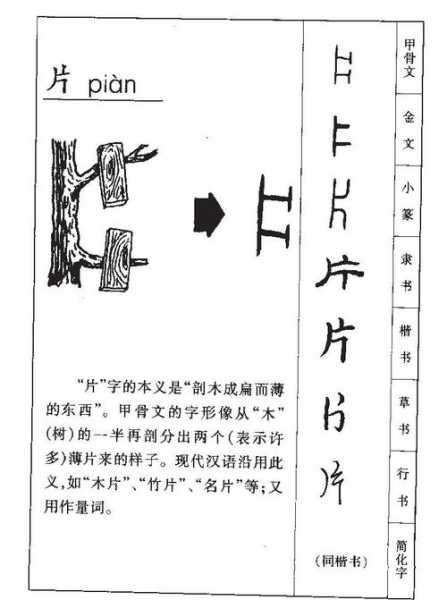 片 piàn
“片”字的本义是“剖木成扁而薄
的东西”。甲骨文的字形像从“木”
(树)的一半再剖分出两个(表示许
多)薄片来的样子。现代汉语沿用此
义,如“木片”、“竹片”、“名片”等;又
用作量词。
片
片
片
片
(同楷书)
甲骨文
金文
小篆
隶书
楷书
草书
行书
简化字